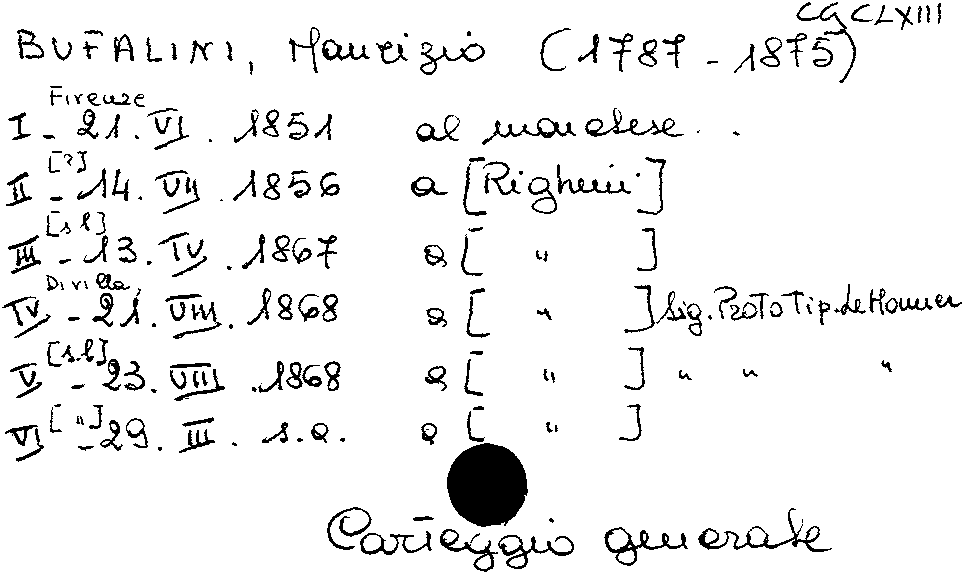 CG CLXIII
BUFALINI, Maurizio (1787 - 1875)
Firenze
I - 21. VI. 1851 al marchese ..
[?]
II - 14. VII. 1856 a [Righini]
[s.l]
III - 13. IV. 1867 a [ " ]
Di villa,
IV - 21. VIII. 1868 a [ " ] Sig. Proto Tip. Le Monnier
[s.l]
V - 23. VIII. 1868 a [ " ] " " "
[ " ]
VI - 29. III. s.a. a [ " ]
Carteggio generale